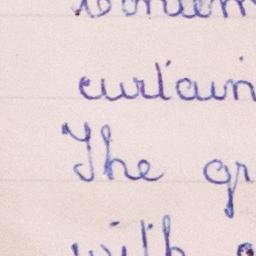 curtain
The gr
with